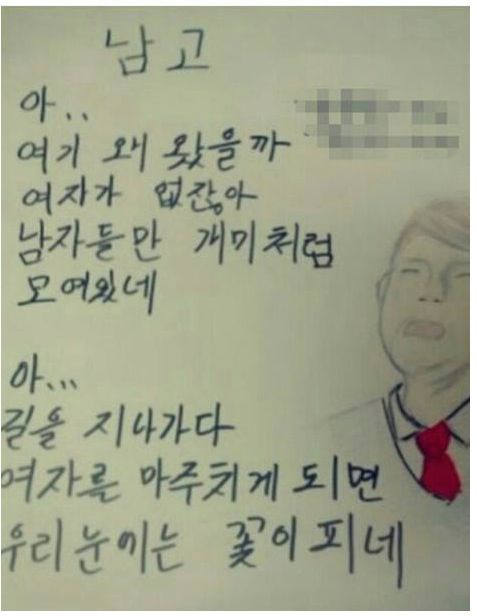 남고
아..
여기 왜 왔을까
여자가 없잖아
남자들만 개미처럼
모여있네
아...
길을 지나가다
여자를 마주치게 되면
우리 눈에는 꽃이 피네